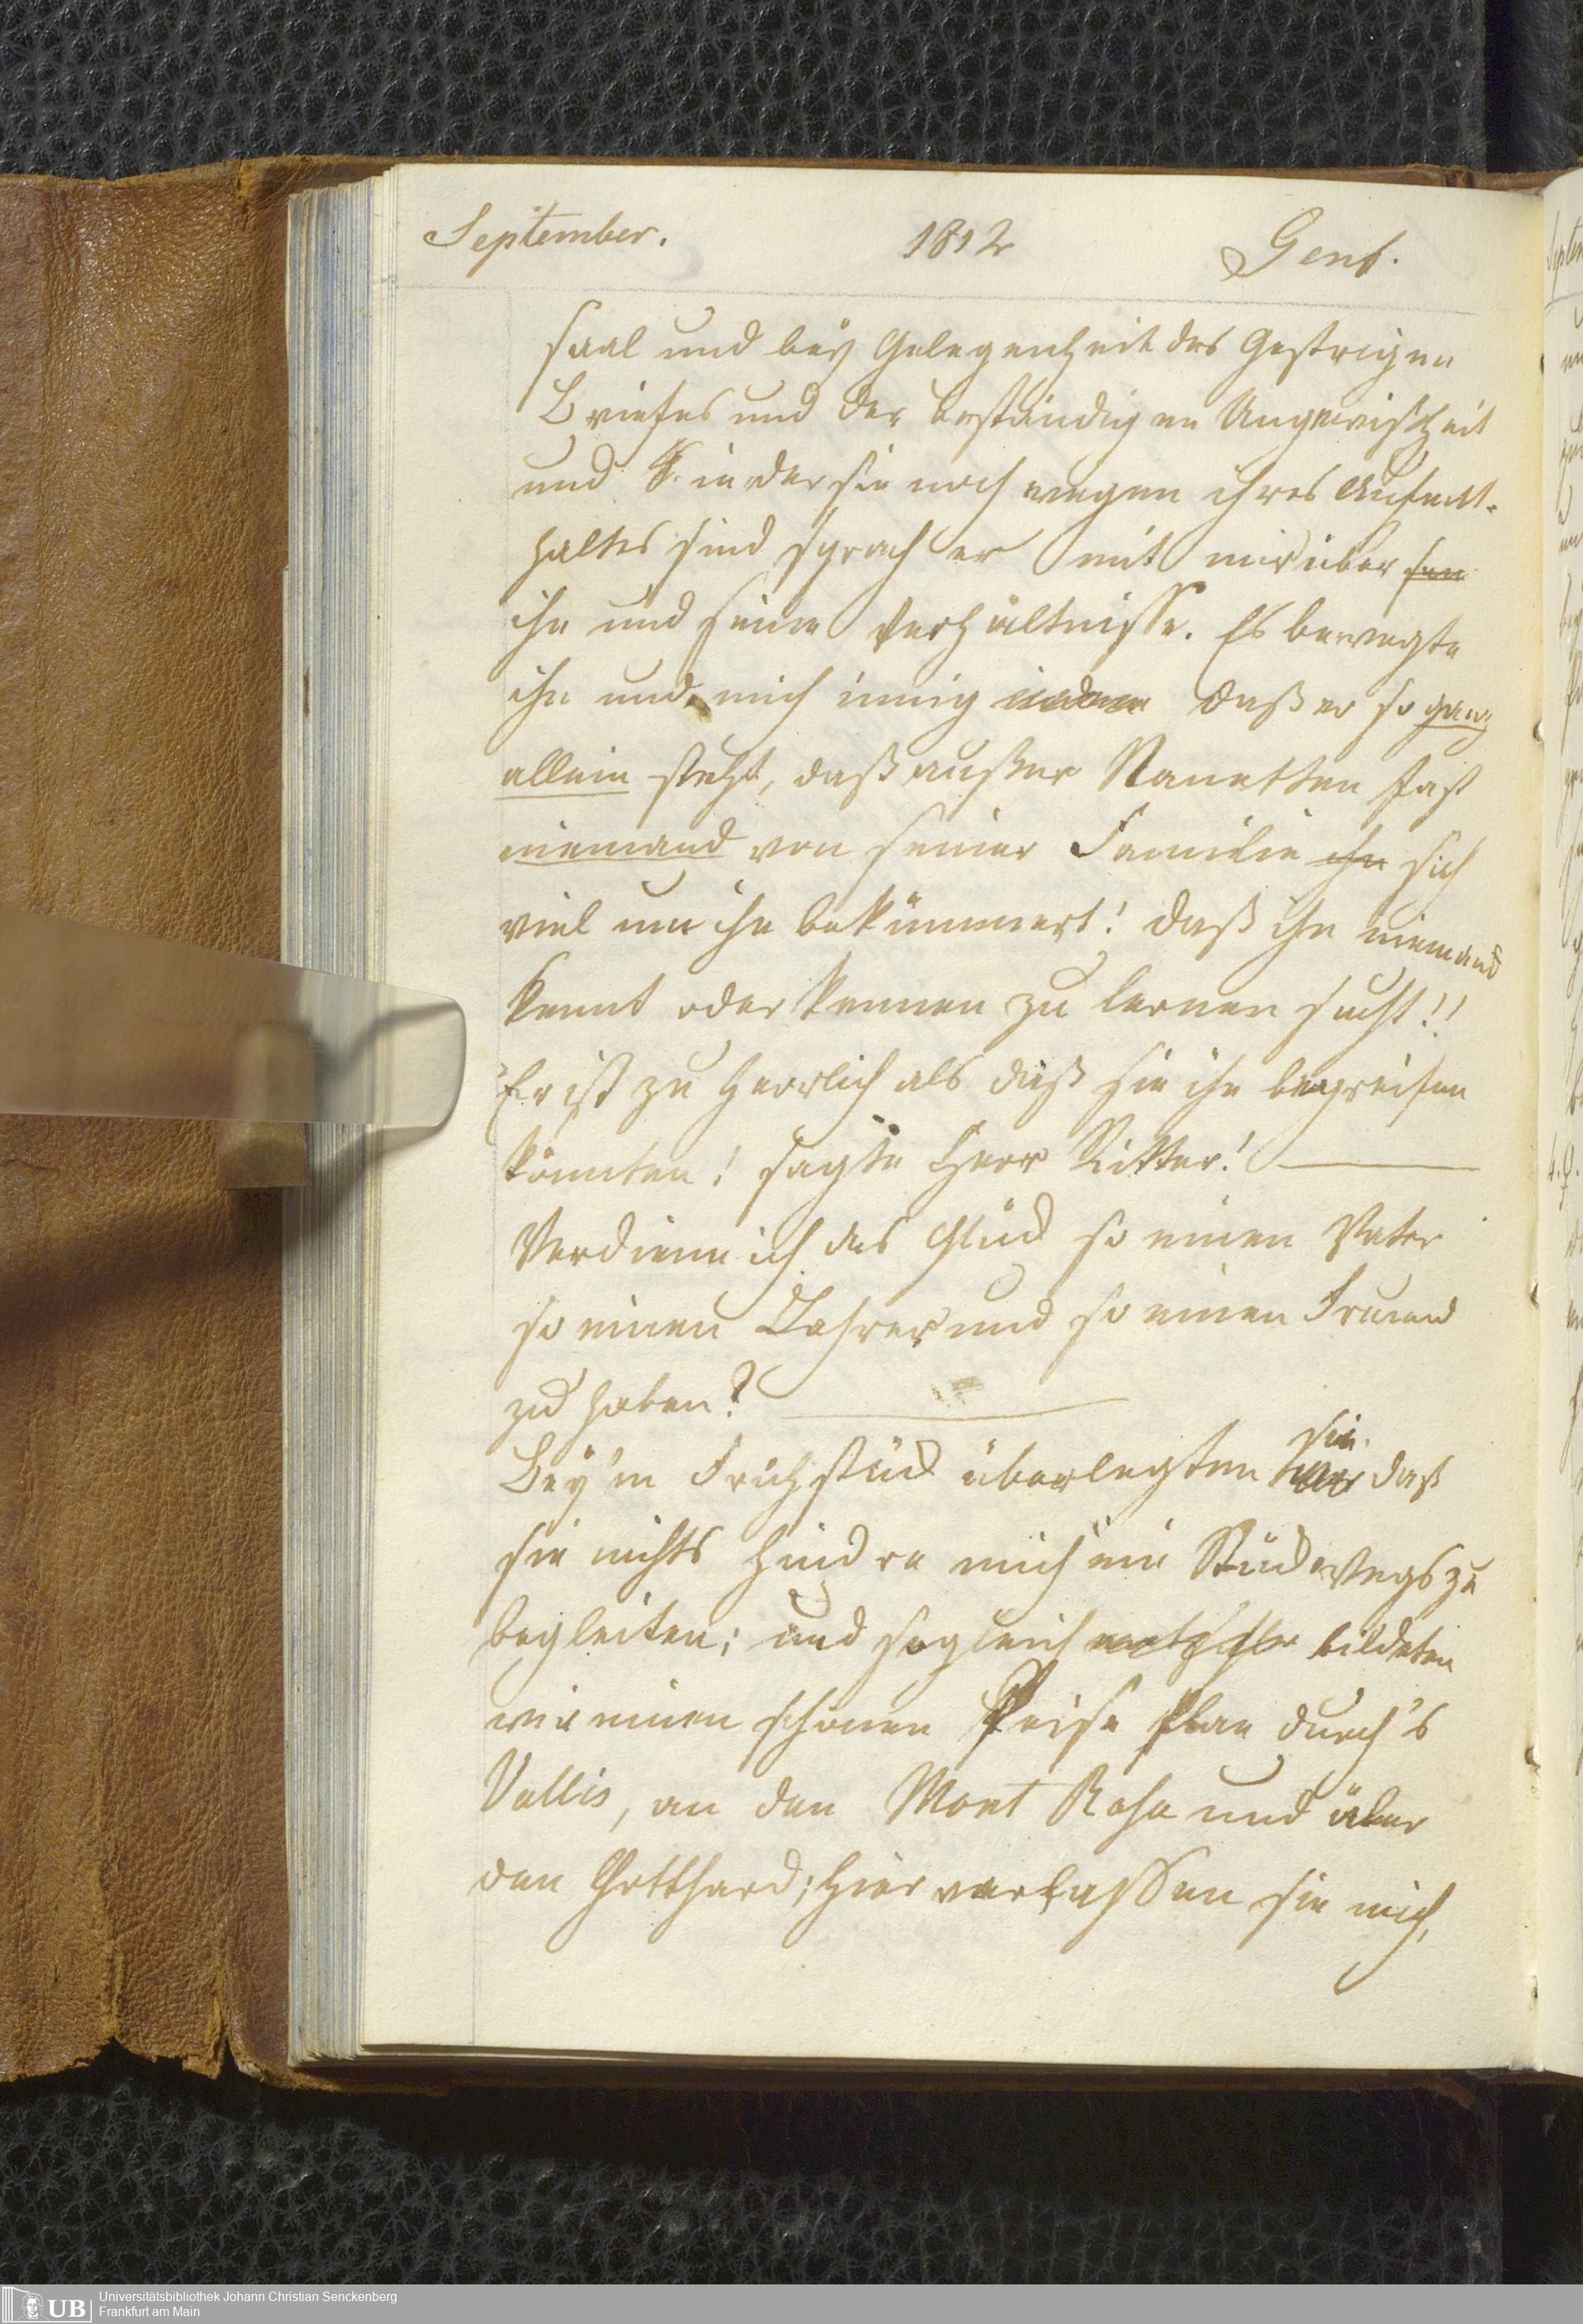 September. 1812 Genf.
saal und beÿ Gelegenheit des Gestrigen
Briefes und der beständigen Ungewisheit
und F. in der sie noch wegen ihres Aufent-
haltes sind sprach er mit mir über
ihn und seine Verhältnisse. Es bewegte
ihn und mich innig daß er so ganz
allein steht, daß außer Nanetten fast
niemand von seiner Familie ihn sich
viel um ihn bekümmert! daß ihn niemand
kennt oder kennen zu lernen sucht!!
Er ist zu herrlich als daß sie ihn begreifen
könnten! sagte Herr Ritter! —
Verdiene ich das Glück so einen Vater
so einen Lehrer und so einen Freund
zu haben? —
Beÿ'm Frühstück überlegten sie daß
sie nichts hindre mich ein Stück Wegs zu
begleiten; und sogleich bildeten
wir einen schönen Reise Plan durch's
Vallis, an den Mont Rosa und über
den Gotthard; hier verlassen sie mich,
Universitätsbibliothek Johann Christian Senckenberg
UB Frankfurt am Main